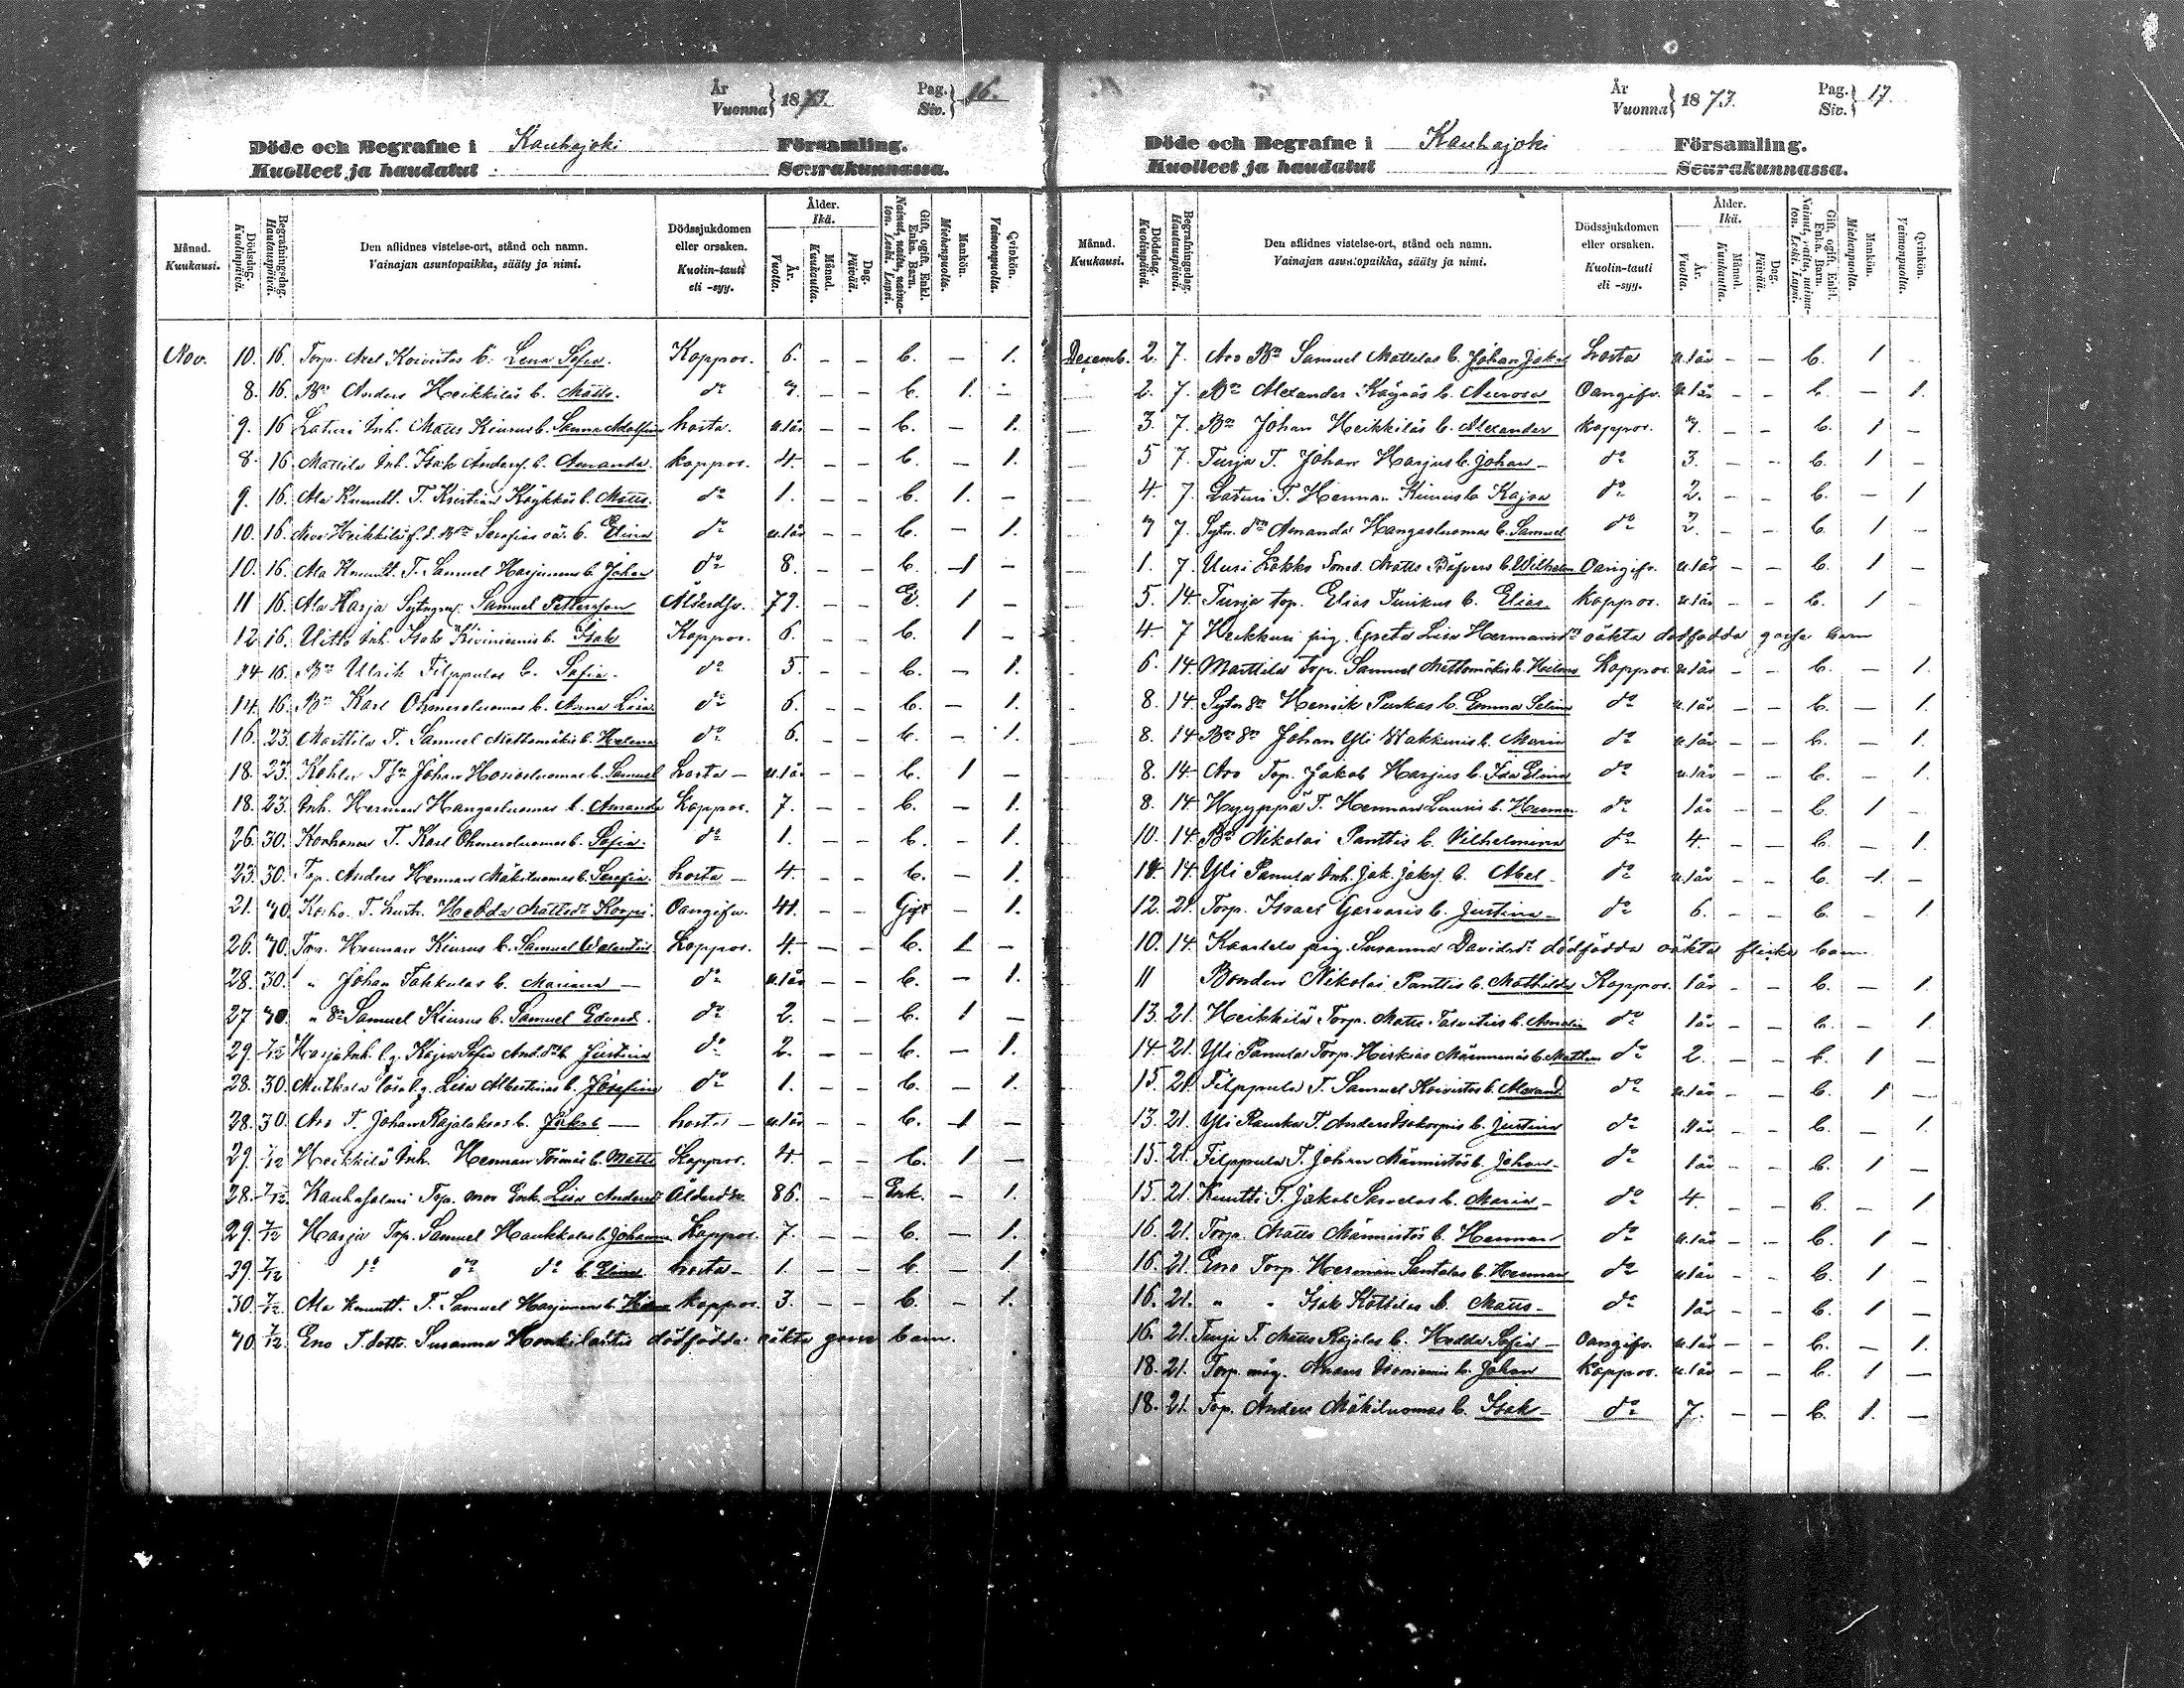 År
Vuonna} 1873. Pag.
Siv.} 16.
Döde och Begrafne i Kauhajoki Församling.
Kuolleet ja haudatut Seurakunnassa.
Månad. Kuukausi.
Dödsdag. Kuolinpäivä.
Begrafningsdag. Hautauspäivä.
Den aflidnes vistelse-ort, stånd och namn.
Vainajan asuntopaikka, sääty ja nimi.
Dödssjukdomen eller orsaken.
Kuolin-tauti eli -syy.
Ålder. Ikä.
År. Vuotta.
Månad. Kuukautta.
Dag. Päivää.
Gift, ogift, Enkl. Enka. Barn. Nainut, naitu, naimaton. Leski. Lapsi.
Mankön. Miehenpuolta.
Qvinkön. Vaimonpuolta.
Nov. 10. 16. Torp. Axel Koivistos b. Lena Sofia. Koppor. 6. – – b. – 1.
8. 16. Bn Anders Heikkiläs b. Matts. do 7. – – b. 1. –
9. 16 Laturi Inh. Matts Kiurus b. Sanna Adolfina hosta. u. 1 år – – b. – 1.
8. 16. Mattila Inh. Isak Anders. b. Amanda. koppor. 4. – – b. – 1.
9. 16. Ala Knuutt. T. Kristian Köykkös b. Matts. do 1. – – b. 1. –
10. 16. Heikkilä f. d. Bn Serafias oä. b. Elina do u. 1 år – – b. – 1.
10. 16. Ala Knuutt. T. Samuel Harjunens b. Johan do 8. – – b. 1 –
11 16. Ala Harja Sytngm. Samuel Pettersson Ålderdsv. 79. – – E. 1 –
12 16. Inh. Isak Kiviniemis b. Isak Koppor. 6. – – b. 1 –
14 16. Bn Ulrik Filppulas b. Sofia. do 5. – – b. – 1.
14. 16. Bn Karl Ohmeroluomas b. Anna Lisa do 6. – – b. – 1.
16. 23. Marttila T. Samuel Mettomäkis b. Helena do 6. – – b. – 1.
18. 23. Johan Hosiosluomas b. Samuel hosta – u. 1 år – – b. 1 –
18. 23. Inh. Herman Hangasluomas b. Amanda Koppor. 7. – – b. – 1.
26. 30. Korhonen T. Karl Ohmeroluomas b. Sofia. do 1. – – b. – 1.
23. 30. Torp. Anders Herman Mäkiluomas b. Serafia. hosta – 4. – – b. – 1.
21. 30. Kosho. T. hustr. Hedda Mattsdr Korpi. Oangifv. 41. – – Gift – 1.
26. 30. Torp. Herman Kiurus b. Samuel Walentin Koppor. 4. – – b. 1 –
28. 30. " Johan Tahkulas b. Mariana – do u. 1 år – – b. – 1.
27 30 " Sn Samuel Kiurus b. Samuel Edvard. do 2. – – b. 1 –
29. 7/12 Harja Inh. Kajsa Sofia And. dr b. Justina do 2. – – b. – 1.
28. 30. Lisa Albertinas b. Josefina do 1. – – b. – 1.
28. 30. Aro T. Johan Rajalakses b. Jakob – hosta – u. 1 år – – b. 1 –
29. 7/12 Heikkilä Inh. Herman Törmäs b. Matts Koppor. 4. – – b. 1 –
28. 7/12 Kauhajärvi Torp. mor Enk. Lisa Andersdr Ålderdsv. 86. – – Enk. – 1.
29. 7/12 Harja Torp. Samuel Haukkalas b. Johanna Koppor. 7. – – b. – 1.
39. 7/12 do do do b. Elina hosta – 1. – – b. – 1.
30. 7/12. Ala Knuutt. T. Samuel Harjunens b. koppor. 3. – – b. – 1.
30. 7/12. Eno T. dottr. Susanna dödfödda oäkta gosse barn.
År
Vuonna} 1873. Pag.
Siv.} 17.
Döde och Begrafne i Kauhajoki Församling.
Kuolleet ja haudatut Seurakunnassa.
Månad. Kuukausi.
Dödsdag. Kuolinpäivä.
Begrafningsdag. Hautauspäivä.
Den aflidnes vistelse-ort, stånd och namn.
Vainajan asuntopaikka, sääty ja nimi.
Dödssjukdomen eller orsaken.
Kuolin-tauti eli -syy.
Ålder. Ikä.
År. Vuotta.
Månad. Kuukautta.
Dag. Päivää.
Gift, ogift, Enkl. Enka. Barn. Nainut, naitu, naimaton. Leski. Lapsi.
Mankön. Miehenpuolta.
Qvinkön. Vaimonpuolta.
Decemb. 2. 7. Aro Bn Samuel Mattilas b. Johan Jakob hosta u. 1 år – – b. 1 –
2. 7. Bn Alexander Käyräs b. Aurora Oangifv. u. 1 år – – b. – 1.
3. 7. Bn Johan Heikkiläs b. Alexander koppor. 7. – – b. 1 –
5 7. Turja T. Johan Harjus b. Johan – do 3. – – b. 1 –
4. 7. Laturi T. Herman Kiurus b. Kajsa do 2. – – b. – 1
7 7. Sytn. dn Amanda Hangasluomas b. Samuel do 2. – – b. 1 –
1. 7. Uusi Lakko Matts b. Wilhelm Oangifv. u. 1 år – – b. 1 –
5. 14. Turja top. Elias Turikus b. Elias. koppor. u. 1 år – – b. 1 –
4. 7 Heikkuri pig. Greta Lisa Hermansdr oäkta dödfödda gosse barn
6. 14. Marttila Torp. Samuel Mettomäkis b. Helena Koppor. u. 1 år – – b. – 1.
8. 14. Sytn Sn Henrik Purkas b. Emma Selina do u. 1 år – – b. – 1.
8. 14 Bn Sn Johan Yli b. Maria do u. 1 år – – b. – 1.
8. 14. Aro Top. Jakob Harjus b. Ida Elina do u. 1 år – – b. – 1.
8. 14 Hyyppä T. Herman Luuris b. Herman do 1 år – – b. 1 –
10. 14. Bn Nikolai Panttis b. Vilhelmina do 4. – – b. – 1.
14. Yli Panula Inh. Jak. Jaks. b. Abel – do u. 1 år – – b. 1. –
12. 21. Torp. Israel b. Justina – do 6. – – b. – 1.
10. 14. pig. Susanna Davidsdr dödfödda oäkta flicke barn
11 Bonden Nikolai Panttis b. Mathilda Koppor. 1 år – – b. – 1
13. 21. Heikkilä Torp. Matts b. Amalia do 1 år – – b. – 1.
14. 21. Yli Panula Torp. Hiskias b. do 2. – – b. 1 –
15. 21. Filppula T. Samuel Koivistos b. Alexand. do u. 1 år – – b. 1 –
13. 21. Yli Rauska T. Anders Isokorpis b. Justina do 1 år – – b. – 1.
15. 21. Filppula T. Johan Männistös b. Johan – do 1 år – – b. 1 –
15. 21. Knuutti T. Jakob b. Maria – do 4. – – b. – 1
16. 21. Torp. Matts Männistös b. Herman do u. 1 år – – b. 1 –
16. 21. Eno Torp. Herman Santalas b. Herman do u. 1 år – – b. 1 –
16. 21. " " Isak Köttilas b. Matts – do 1 år – – b. 1 –
16. 21. Turja T. Matts Rajalas b. Hedda Sofia – Oangifv. u. 1 år – – b. – 1.
18. 21. Torp. b. Johan koppor. u. 1 år – – b. 1 –
18. 21. Top. Anders Mäkiluomas b. Isak – do 7. – – b. 1. –